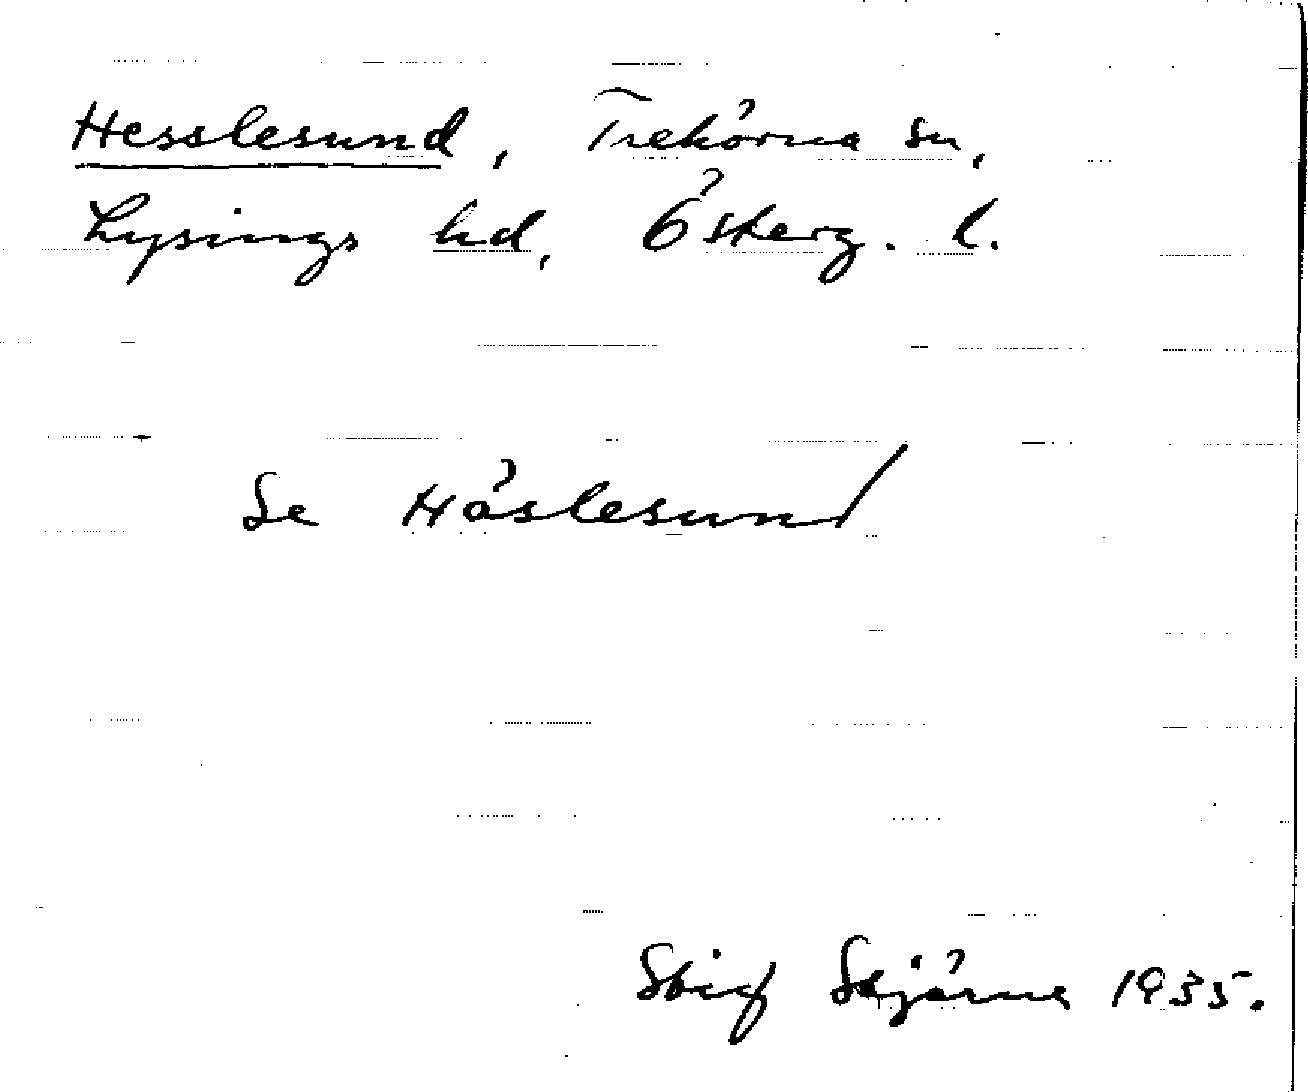 Hesslesund, Trehörna sn,
Lysings hd, Österg. l.
Se Häslesund
Stig Stjärne 1935.